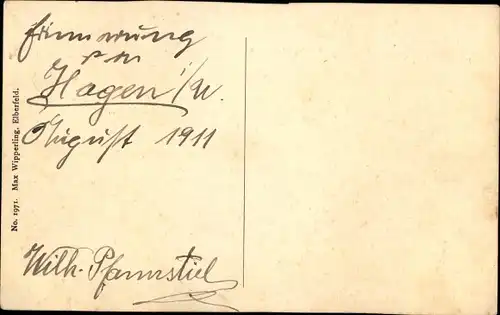 Erinnerung
an
Hagen i/W.
August 1911
Wilh. Pfannstiel
No. 1971. Max Wipperling, Elberfeld.